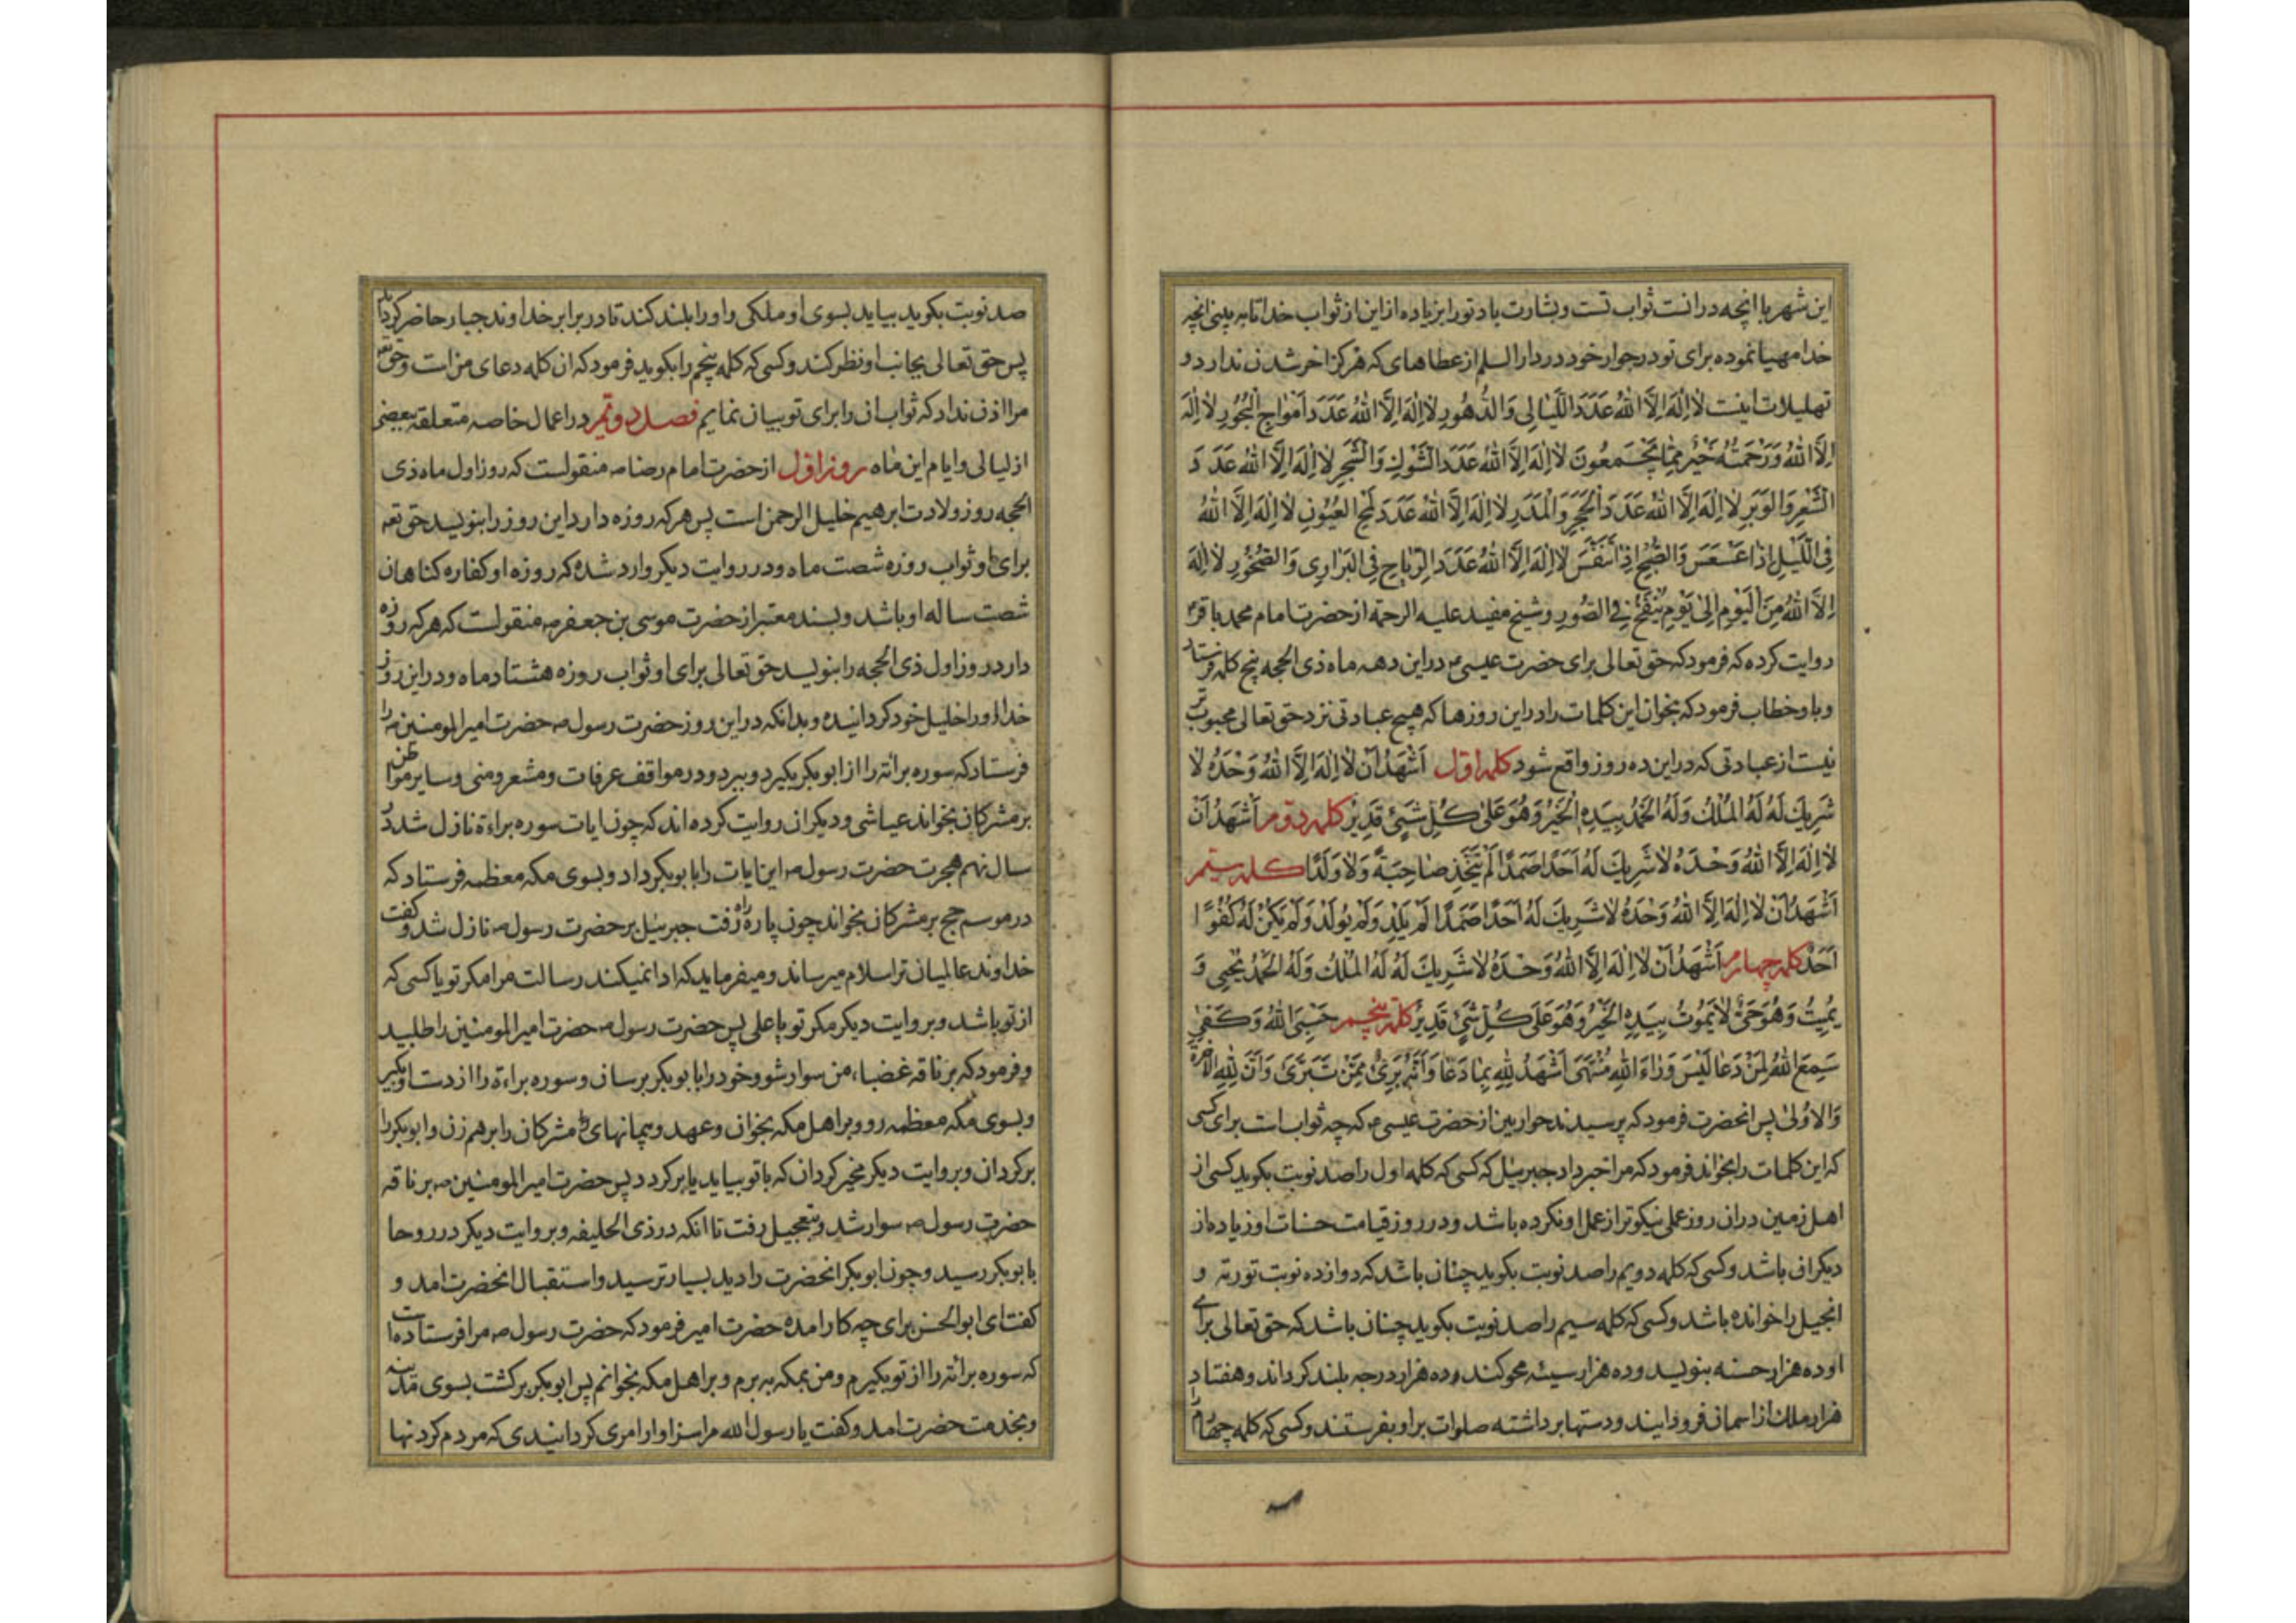 این شهر با انچه درانست ثواب تست و بشارت باد تو را بزیاده از این از ثواب خدا تا به بینی انچه
خدا مهیا نموده برای تو در جوار خود در دار السلم از عطاهای که هرکز اخر شدن ندارد و
تهلیلات اینت لا اِلٰهَ اِلَّا اللهُ عَدَدَ اللَّیٰالی وَ الدُّهُورِ لا اِلٰهَ اِلَّا اللهُ عَدَدَ اَمْوٰاجِ الْبُحُورِ لا اِلٰهَ
اِلَّا اللهُ وَ رَحْمَتُهُ خَیْرٌ مِمّٰا یَجْمَعُونَ لا اِلٰهَ اِلَّا اللهُ عَدَدَ الشَّوْكِ وَ الشَّجَرِ لا اِلٰهَ اِلَّا اللهُ عَدَدَ
الشَّعْرِ وَ الْوَبَرِ لا اِلٰهَ اِلَّا اللهُ عَدَدَ الْحَجَرِ وَ الْمَدَرِ لا اِلٰهَ اِلَّا اللهُ عَدَدَ لَمْحِ الْعُیُونِ لا اِلٰهَ اِلَّا اللهُ
فِی اللَّیْلِ اِذٰا عَسْعَسَ وَ الصُّبْحِ اِذٰا تَنَفَّسَ لا اِلٰهَ اِلَّا اللهُ عَدَدَ الرِّیٰاحِ فِی الْبَرٰاری وَ الصُّخُورِ لا اِلٰهَ
اِلَّا اللهُ مِنَ الْیَوْمِ اِلیٰ یَوْمِ یُنْفَخُ فِی الصُّورِ و شیخ مفید علیه الرحمة از حضرت امام محمد باقرؑ
روایت کرده که فرمود که حق تعالی برای حضرت عیسیؑ در این دهه ماه ذی الحجه پنج کلمه فرستاد
و باو خطاب فرمود که بخوان این کلمات را در این روزها که هیچ عبادتی نزد حق تعالی محبوب تر
نیت از عبادتی که در این ده روز واقع شود کلمه اوّل اَشْهَدُ اَنْ لا اِلٰهَ اِلَّا اللهُ وَحْدَهُ لا
شَریكَ لَهُ لَهُ الْمُلْكُ وَ لَهُ الْحَمْدُ بِیَدِهِ الْخَیْرُ وَ هُوَ عَلیٰ کُلِّ شَیْئٍ قَدیرٌ کلمه دوّم اَشْهَدُ اَنْ
لا اِلٰهَ اِلَّا اللهُ وَحْدَهُ لا شَریكَ لَهُ اَحَدًا صَمَدًا لَمْ یَتَّخِذْ صٰاحِبَةً وَ لا وَلَدًا کلمه سیّم
اَشْهَدُ اَنْ لا اِلٰهَ اِلَّا اللهُ وَحْدَهُ لا شَریكَ لَهُ اَحَدًا صَمَدًا لَمْ یَلِدْ وَ لَمْ یُولَدْ وَ لَمْ یَکُنْ لَهُ کُفُوًا
اَحَدٌ کلمه چهارم اَشْهَدُ اَنْ لا اِلٰهَ اِلَّا اللهُ وَحْدَهُ لا شَریكَ لَهُ لَهُ الْمُلْكُ وَ لَهُ الْحَمْدُ یُحْیی وَ
یُمیتُ وَ هُوَ حَیٌّ لا یَمُوتُ بِیَدِهِ الْخَیْرُ وَ هُوَ عَلیٰ کُلِّ شَیْئٍ قَدیرٌ کلمه پنجم حَسْبِیَ اللهُ وَ کَفیٰ
سَمِعَ اللهُ لِمَنْ دَعٰا لَیْسَ وَرٰاءَ اللهِ مُنْتَهیٰ اَشْهَدُ لِلّٰهِ بِمٰا دَعٰا وَ اَنَّهُ بَرِیْءٌ مِمَّنْ تَبَرَّیَ وَ اَنَّ لِلّٰهِ الْاٰخِرَةَ
وَ الْاُولیٰ پس انحضرت فرمود که پرسیدند حواریین از حضرت عیسیؑ که چه ثواب است برای کسی
که این کلمات را بخواند فرمود که مرا خبر داد جبرئیل که کسی که کلمه اول را صد نوبت بکوید کسی از
اهل زمین در ان روز عملی نیکوتر از عمل او نکرده باشد و در روز قیامت حسنات او زیاده از
دیکران باشد و کسی که کلمه دویم را صد نوبت بکوید چنان باشد که دوازده نوبت توریة و
انجیل را خوانده باشد و کسی که کلمه سیم را صد نوبت بکوید چنان باشد که حق تعالی برای
او ده هزار حسنه بنویسد و ده هزار سیئه محو کند و ده هزار درجه بلند کرداند و هفتاد
هزار ملك از اسمان فرود ایند و دستها برداشته صلوات بر او بفرستند و کسی که کلمه چهارم را
صد نوبت بکوید بیاید بسوی او ملکی و او را بلند کند تا در برابر خداوند جبار حاضر کرداند
پس حق تعالی بجانب او نظر کند و کسی که کلمه پنجم را بکوید فرمود که ان کلمه دعای من است و حق تعه
مرا اذن نداد که ثواب ان را برای تو بیان نمایم فصل دوّیم در اعمال خاصه متعلقه ببعضی
از لیالی و ایام این ماه روز اوّل از حضرت امام رضاؑ منقولست که روز اول ماه ذی
الحجه روز ولادت ابرهیم خلیل الرحمن است پس هر که روزه دارد این روز را بنویسد حق تعه
برای او ثواب روزه شصت ماه و در روایت دیکر وارد شده که روزه او کفاره کناهان
شصت ساله او باشد و بسند معتبر از حضرت موسی بن جعفرؑ منقولست که هر که روزه
دارد روز اول ذی الحجه را بنویسد حق تعالی برای او ثواب روزه هشتاد ماه و در این روز
خدا او را خلیل خود کردانیده و بدانکه در این روز حضرت رسولؐ حضرت امیر المومنینؑ را
فرستاد که سوره برائة را از ابوبکر بکیرد و ببرد و در مواقف عرفات و مشعر و منی و سایر مواطن
بر مشرکان بخواند عیاشی و دیکران روایت کرده اند که چون ایات سوره براءة نازل شد در
سال نهم هجرت حضرت رسولؐ این ایات را بابوبکر داد و بسوی مکه معظمه فرستاد که
در موسم حج بر مشرکان بخواند چون پاره راه رفت جبرئیل بر حضرت رسولؐ نازل شد و کفت
خداوند عالمیان ترا سلام میرساند و میفرماید که ادا نمیکند رسالت مرا مکر تو یا کسی که
از تو باشد و بروایت دیکر مکر تو یا علی پس حضرت رسولؐ حضرت امیر المومنین را طلبید
و فرمود که بر ناقه غضباء من سوار شو و خود را بابوبکر برسان و سوره براءة را از دست او بکیر
و بسوی مکه معظمه رو و بر اهل مکه بخوان و عهد و پیمانهای مشرکان را برهم زن و ابوبکر را
برکردان و بروایت دیکر مخیر کردان که با تو بیاید یا برکردد پس حضرت امیر المومنینؑ بر ناقه
حضرت رسولؐ سوار شد و بتعجیل رفت تا انکه در ذی الحلیفه و بروایت دیکر در روحا
بابوبکر رسید و چون ابوبکر انحضرت را دید بسیار ترسید و استقبال انحضرت امد و
کفت ای ابو الحسن برای چه کار امده حضرت امیر فرمود که حضرت رسولؐ مرا فرستاده است
که سوره برائة را از تو بکیرم و من بمکه به برم و بر اهل مکه بخوانم پس ابوبکر برکشت بسوی مدینه
و بخدمت حضرت امد و کفت یا رسول الله مرا سزاوار امری کردانیدی که مردم کردنها